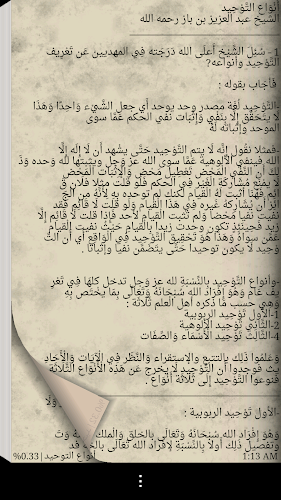 أنواع التوحيد
الشيخ عبد العزيز بن باز رحمه الله
1 - سُئِلَ الشَّيْخُ أعلَى الله دَرَجَتَه فِي المهديين عَن تَعْرِيف
التَّوْحِيد وأنواعه؟
فَأجَاب بقوله :
-التَّوْحِيد لُغَة مصدر وحد يوحد أي جعل الشَّيْء وَاحِدًا وَهَذَا
لَا يتَحَقَّق إِلَّا بِنَفْي وَإِثْبَات نفي الحكم عَمَّا سوى
الموحد وإثباته لَهُ
-فَمثلا نقُول إِنَّه لَا يتم التَّوْحِيد حَتَّى يشْهد أن لَا إِلَه إِلَّا
الله فينفي الألوهية عَمَّا سوى الله عز وَجل ويثبتها لله وَحده وَذَ
لِك أن النَّفْي المَحْض تَعْطِيل مَحْض وَالإِثْبَات المَحْض
لَا يمْنَع مُشَاركَة الغَيْر فِي الحكم فَلَو قلت مثلا فلَان قَ
ائِم فَهُنَا أثبت لَهُ القيام لكنك لم توحده بِهِ لِأَنَّهُ من الج
ائز أن يُشَارِكهُ غَيره فِي هَذَا القيام وَلَو قلت لَا قَائِم فقد
نفيت نفيا مَحْضا وَلم تثبت القيام لأحد فَإِذا قلت لَا قَائِم إِلَّا
زيد فَحِينَئِذٍ تكون وحدت زيدا بِالْقيامِ حَيْثُ نفيت القيام
عَمَّن سواهُ وَهَذَا هُوَ تَحْقِيق التَّوْحِيد فِي الوَاقِع أي أن التَّ
وْحِيد لَا يكون توحيدا حَتَّى يتَضَمَّن نفيا وإثباتا .
-وأنواع التَّوْحِيد بِالنِّسْبَةِ لله عز وَجل تدخل كلهَا فِي تَعْرِ
يف عَام وَهُوَ إِفْرَاد الله سُبْحَانَهُ وَتَعَالَى بِمَا يخْتَص بِهِ
وَهِي حسب مَا ذكره أهل العلم ثَلَاثَة :
1-الأول تَوْحِيد الربوبية
2-الثَّانِي تَوْحِيد الألوهية
4-الثَّالِث تَوْحِيد الأسْمَاء وَالصِّفَات
وَعَلمُوا ذَلِك بالتتبع والاستقراء وَالنَّظَر فِي الآيَات وَالأحَادِ
يث فوجدوا أن التَّوْحِيد لَا يخرج عَن هَذِه الأنْوَاع الثَّلَاثَة
فنوعوا التَّوْحِيد إِلَى ثَلَاثَة أنْوَاع .
-الأول تَوْحِيد الربوبية :
وَهُوَ إِفْرَاد الله سُبْحَانَهُ وَتَعَالَى بالخلق وَالْملك
وتفصيل ذَلِك أولا بِالنِّسْبَةِ لإفراد الله تَعَالَى بالخ
%0.33 | أنواع التوحيد 1:13 AM